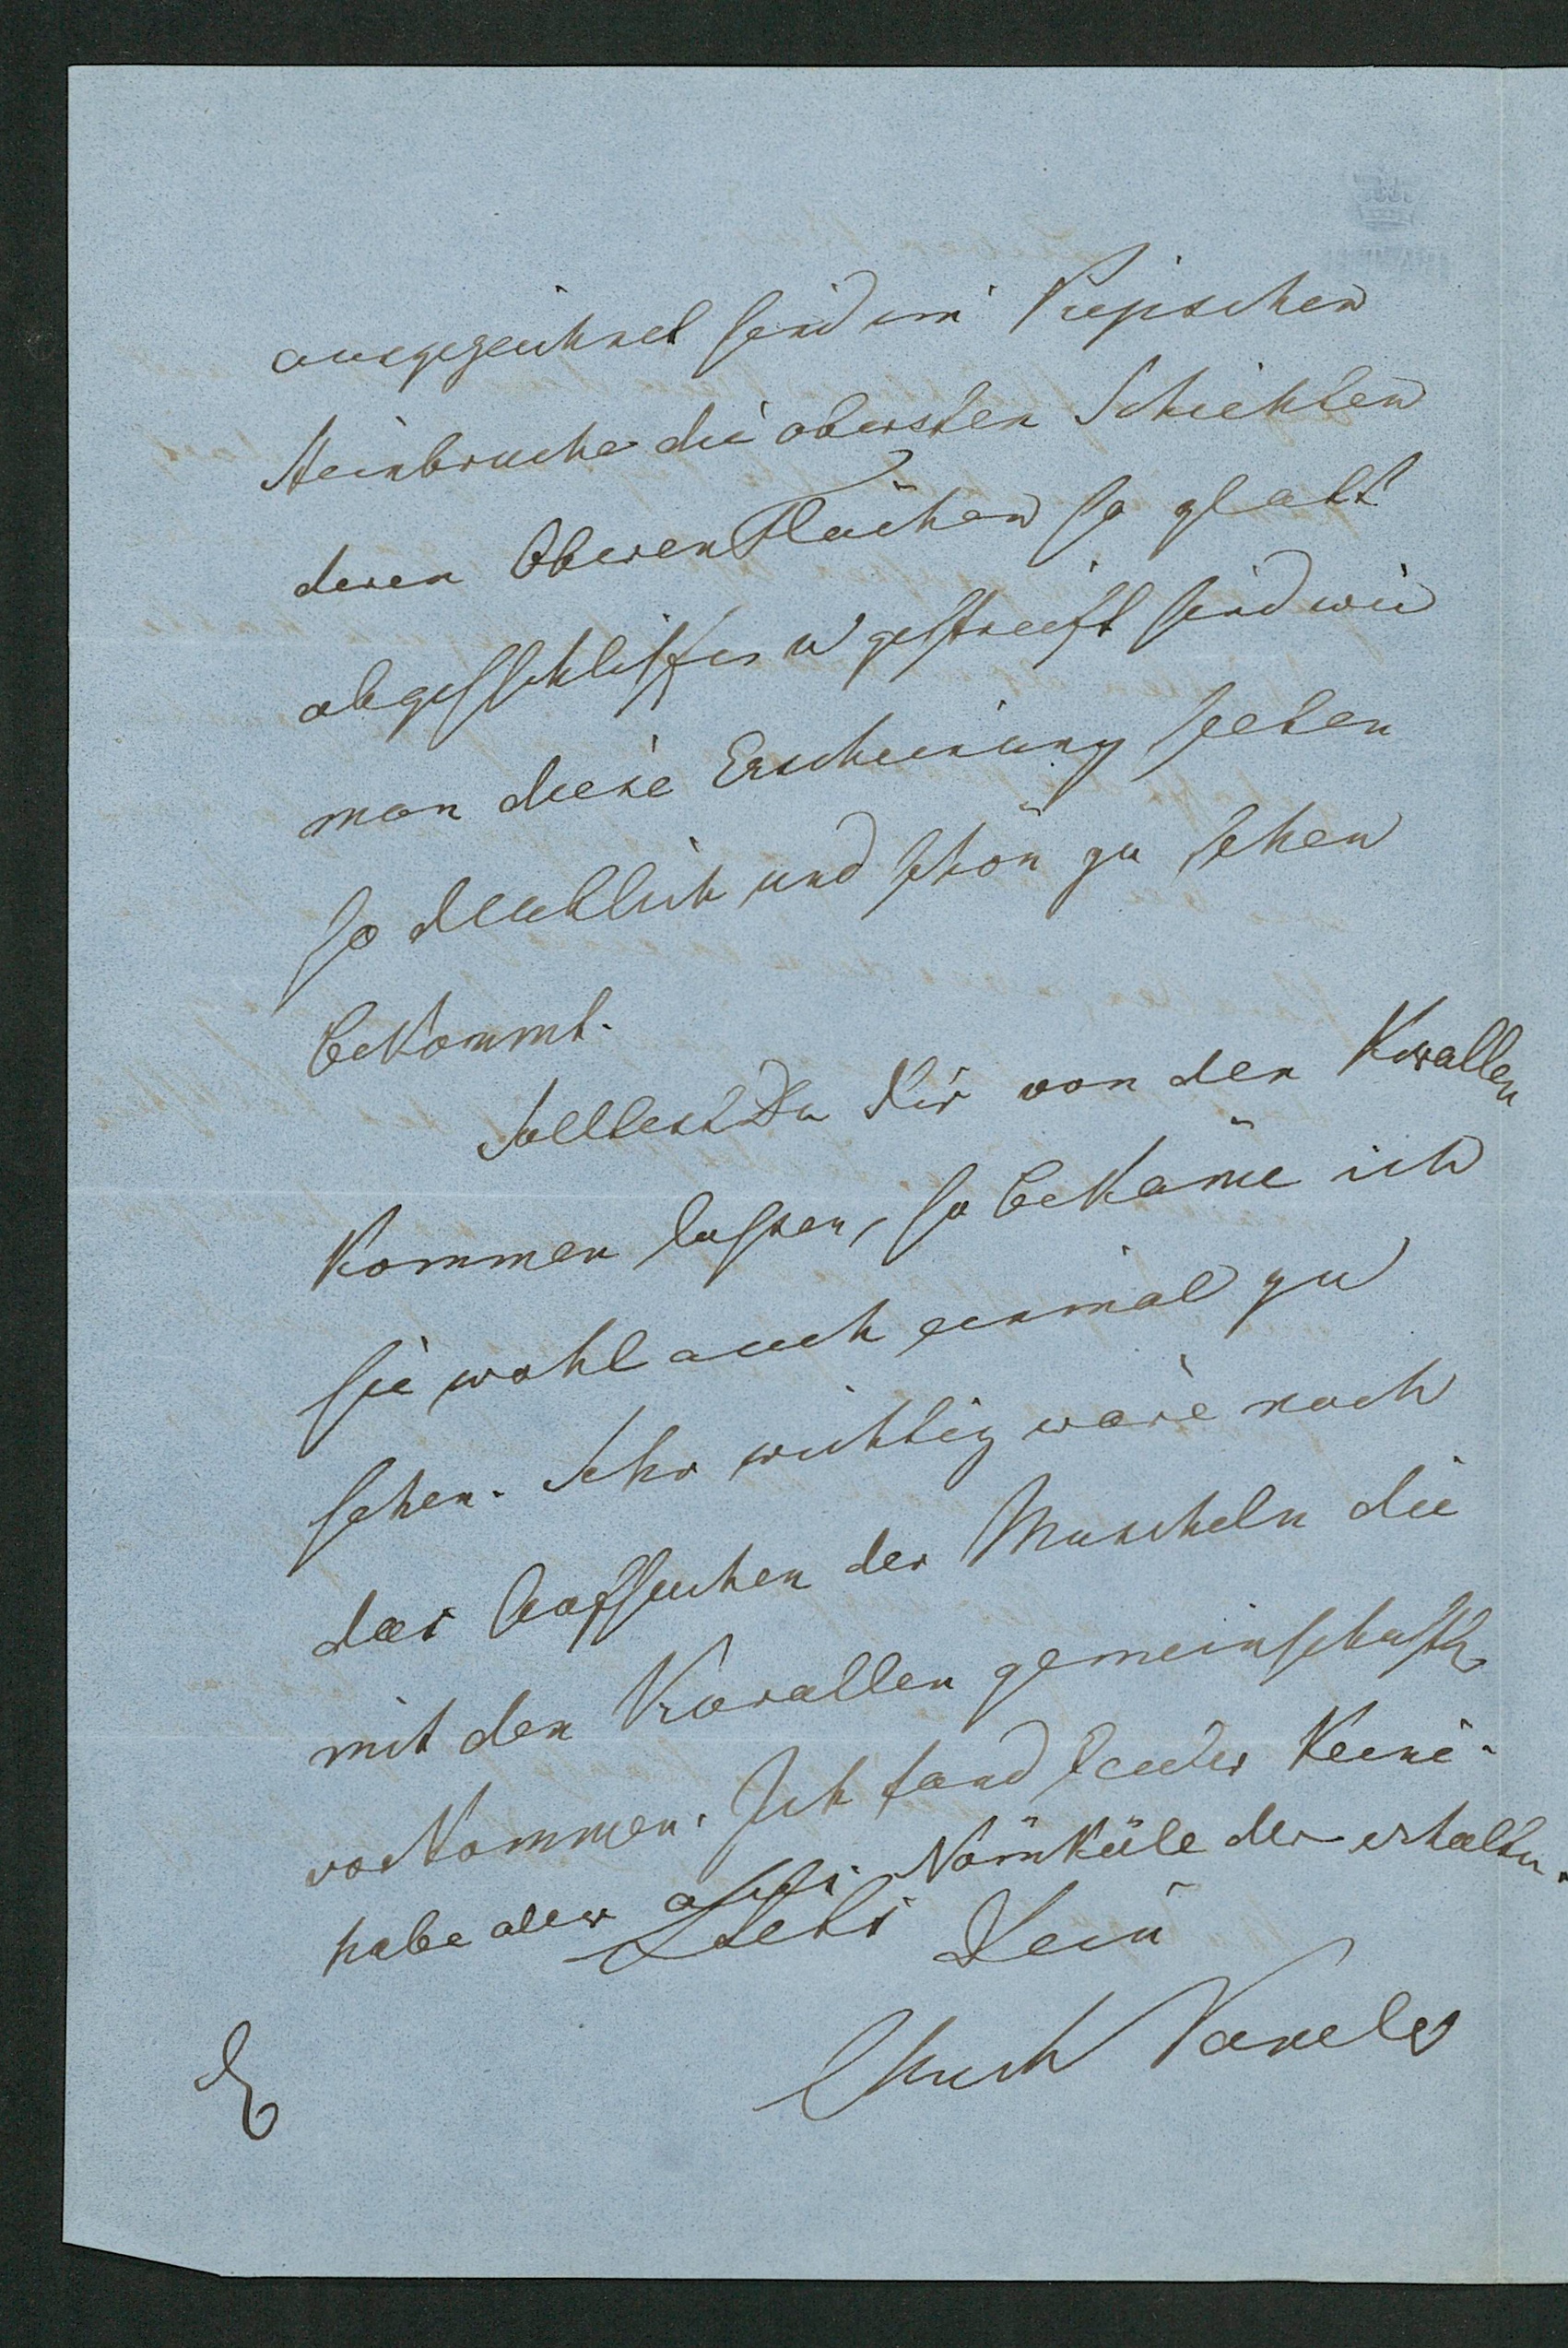 ausgezeichnet sind im
Steinbruche die obersten Schichten
deren Oberen Flächen so glatt
abgeschliffen u gestreift sind wie
man diese Erscheinung selten
so deutlich und schön zu sehen
bekommt.
Solltest Du Dir von den Korallen
kommen lassen, so bekäme ich
sie wohl auch einmal zu
sehen. Sehr wichtig wäre noch
das Aufsuchen der Muscheln die
mit den Korallen gemeinschaftl
vorkommen. Ich fand leider keine
habe aber der erhalten.
Stets Dein